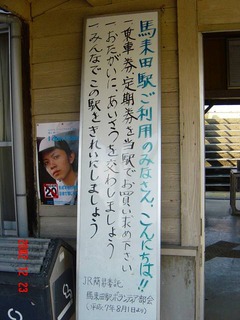 馬来田駅ご利用のみなさん、こんにちは!!
一乗車券、定期券を当駅でお買い求め下さい。
一おたがいに、あいさつを交わしましょう
一みんなでこの駅をきれいにしましょう
馬来田駅ボランティア部会
(平成7年8月1日より)
20
2005 12 23